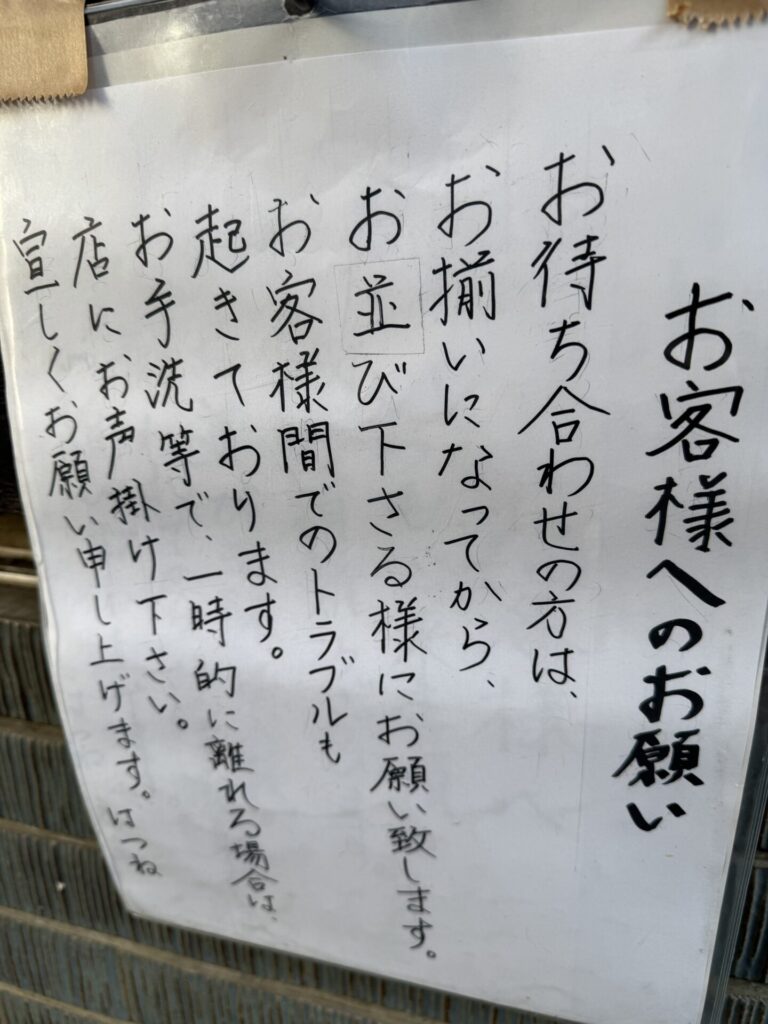 お客様へのお願い
お待ち合わせの方は、
お揃いになってから、
お並び下さる様にお願い致します。
お客様間でのトラブルも
起きております。
お手洗等で、一時的に離れる場合は、
店にお声掛け下さい。
宜しくお願い申し上げます。はつね